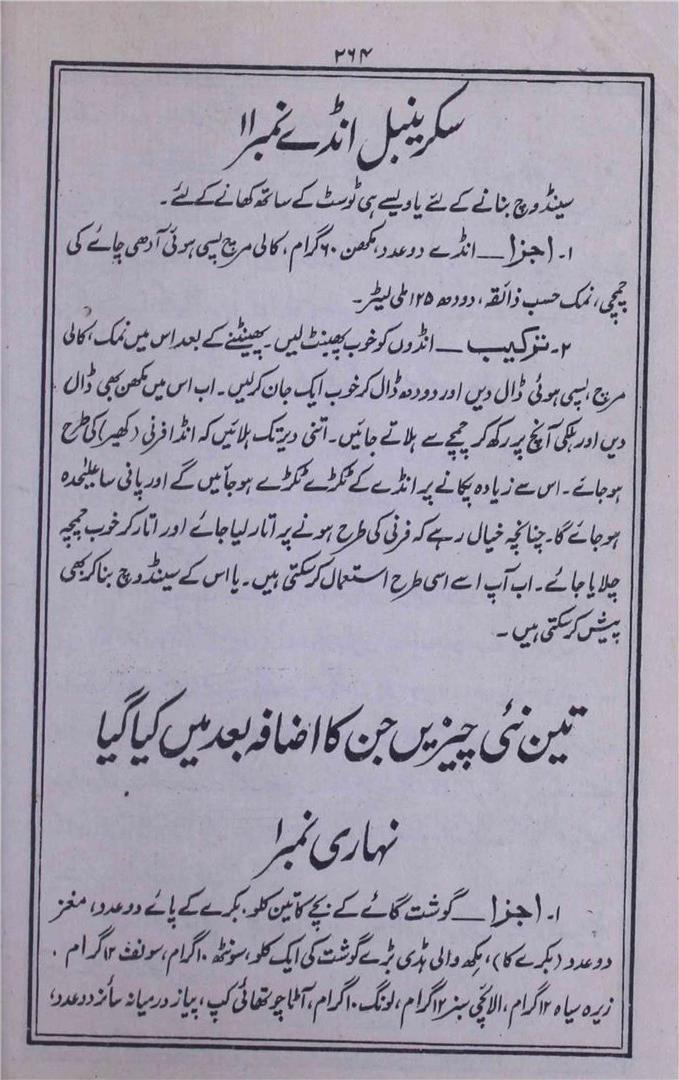 ۲۶۴
سکرینبل انڈے نمبر ۱۱
سینڈوچ بنانے کے لئے یا ویسے ہی ٹوسٹ کے ساتھ کھانے کے لئے۔
۱۔ اجزا ــ انڈے دو عدد، مکھن ۶۰ گرام، کالی مرچ پسی ہوئی آدھی چائے کی
چمچی، نمک حسب ذائقہ، دودھ ۱۲۵ ملی لیٹر۔
۲۔ ترکیب ــ انڈوں کو خوب پھینٹ لیں۔ پھینٹنے کے بعد اس میں نمک، کالی
مرچ، پسی ہوئی ڈال دیں اور دودھ ڈال کر خوب ایک جان کر لیں۔ اب اس میں مکھن بھی ڈال
دیں اور ہلکی آنچ پر رکھ کر چمچے سے ہلاتے جائیں۔ اتنی دیر تک ہلائیں کہ انڈا فرنی (کھیر) کی طرح
ہو جائے۔ اس سے زیادہ پکانے پر انڈے کے ٹکڑے ٹکڑے ہو جائیں گے اور پانی سا علیٰحدہ
ہو جائے گا۔ چنانچہ خیال رہے کہ فرنی کی طرح ہونے پر اتار لیا جائے اور اتار کر خوب چمچہ
چلایا جائے۔ اب آپ اسے اسی طرح استعمال کر سکتی ہیں۔ یا اس کے سینڈوچ بنا کر بھی
پیش کر سکتی ہیں۔
تین نئی چیزیں جن کا اضافہ بعد میں کیا گیا
نہاری نمبر ۱
۱۔ اجزا ــ گوشت گائے کے بچے کا تین کلو، بکرے کے پائے دو عدد، مغز
دو عدد (بکرے کا)، مکھ والی ہڈی بڑے گوشت کی ایک کلو، سونٹھ ۱۰ گرام، سونف ۱۲ گرام.
زیرہ سیاہ ۱۲ گرام، الائچی سبز ۱۲ گرام، لونگ ۱۰ گرام، آٹا چوتھائی کپ، پیاز درمیانہ سائز دو عدد،